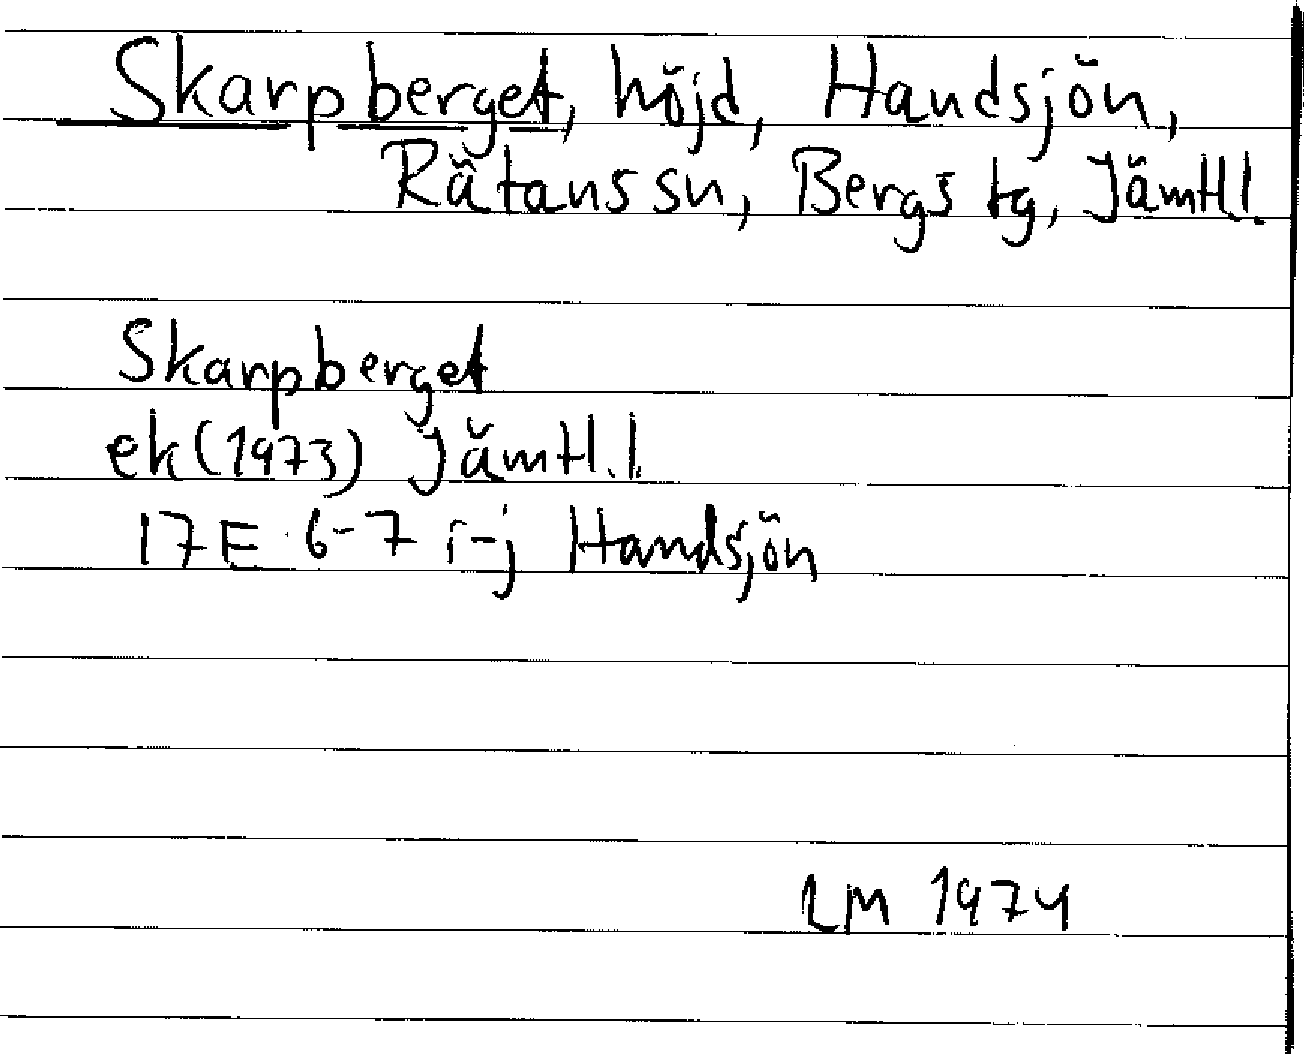 Skarpberget, höjd, Handsjön,
Rätans sn, Bergs tg, Jämtl.
Skarpberget
ek (1973) Jämtl. l.
17E 6-7 i-j Handsjön
LM 1974